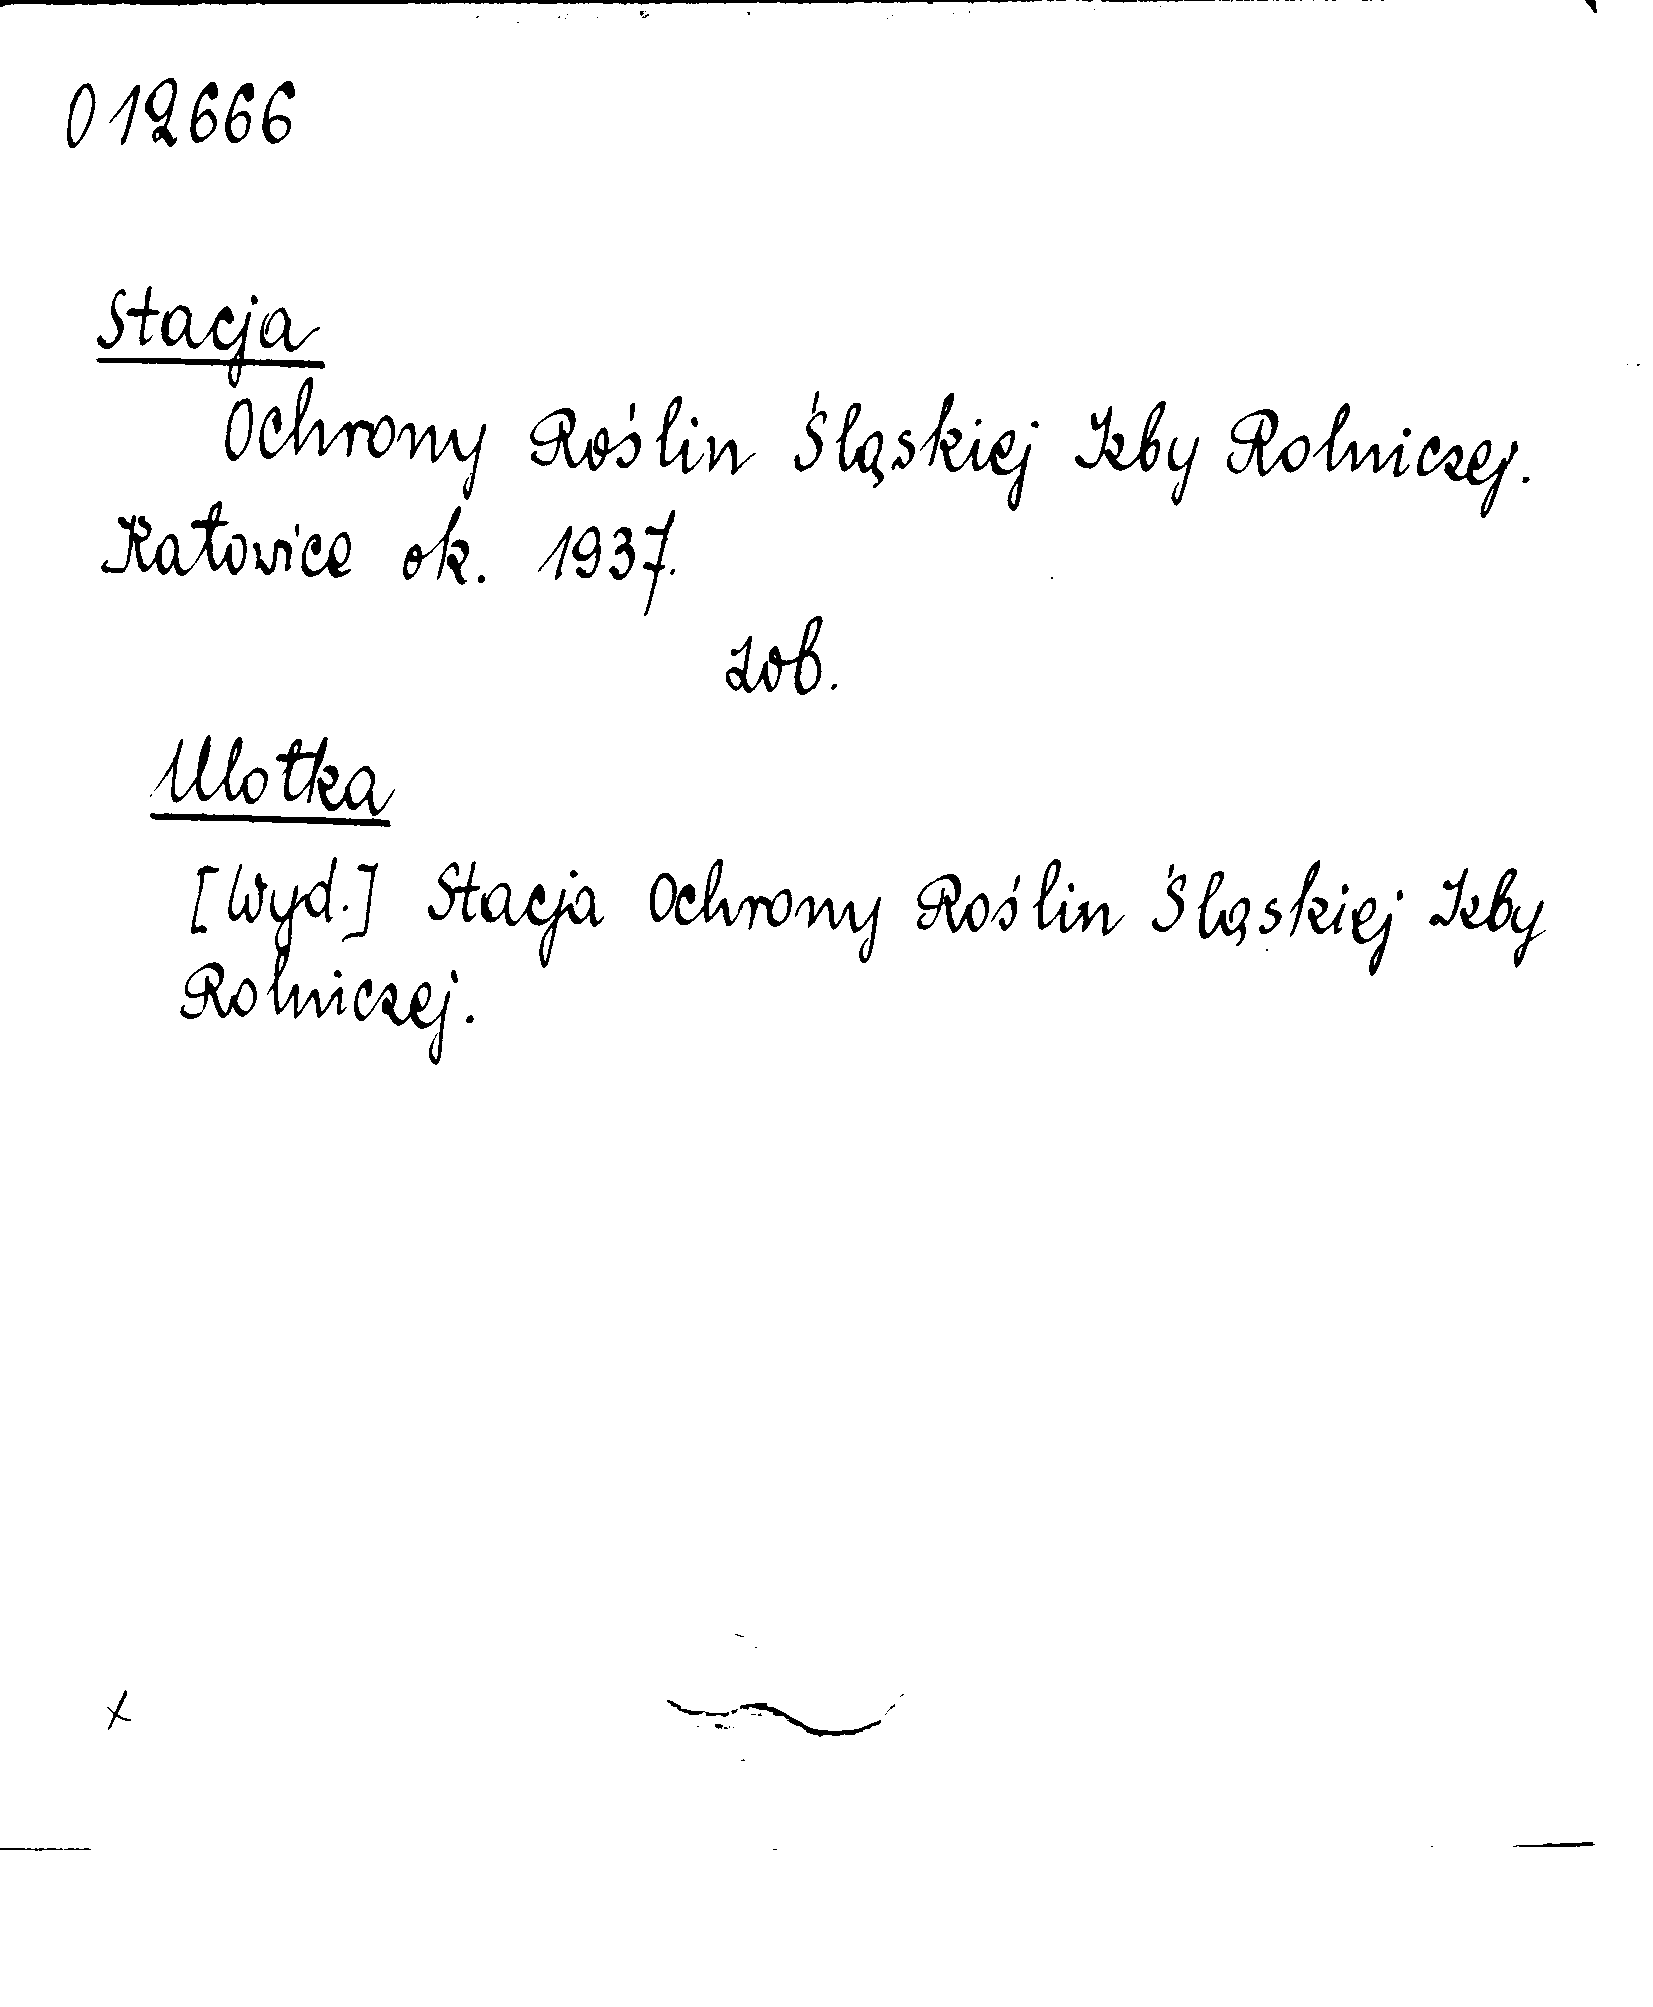 012666
Stacja
Ochrony Roślin Śląskiej Izby Rolniczej.
Katowice ok. 1937.
zob.
Ulotka
[Wyd.] Stacja Ochrony Roślin Śląskiej Izby
Rolniczej.
x